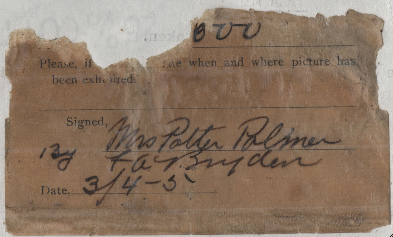 800
Please, if me when and where picture has
been exhibited.
Signed, Mrs Potter Palmer
By F. A. Bryden
Date. 3/4-5